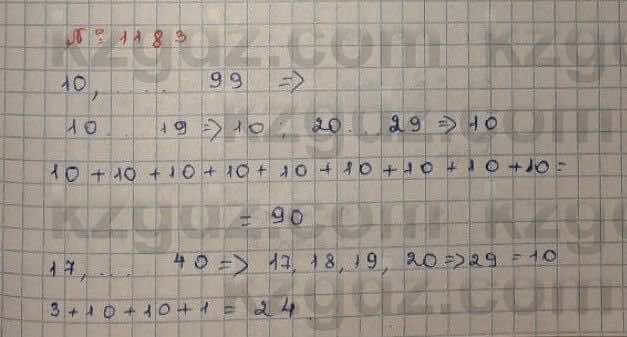 № 1183
10, ..... 99 =>
10 ... 19 => 10 ; 20 .. 29 => 10
10 + 10 + 10 + 10 + 10 + 10 + 10 + 10 + 10 =
= 90
17, .... 40 => 17, 18, 19, 20 => 29 = 10
3 + 10 + 10 + 1 = 24.
kzgdz.com